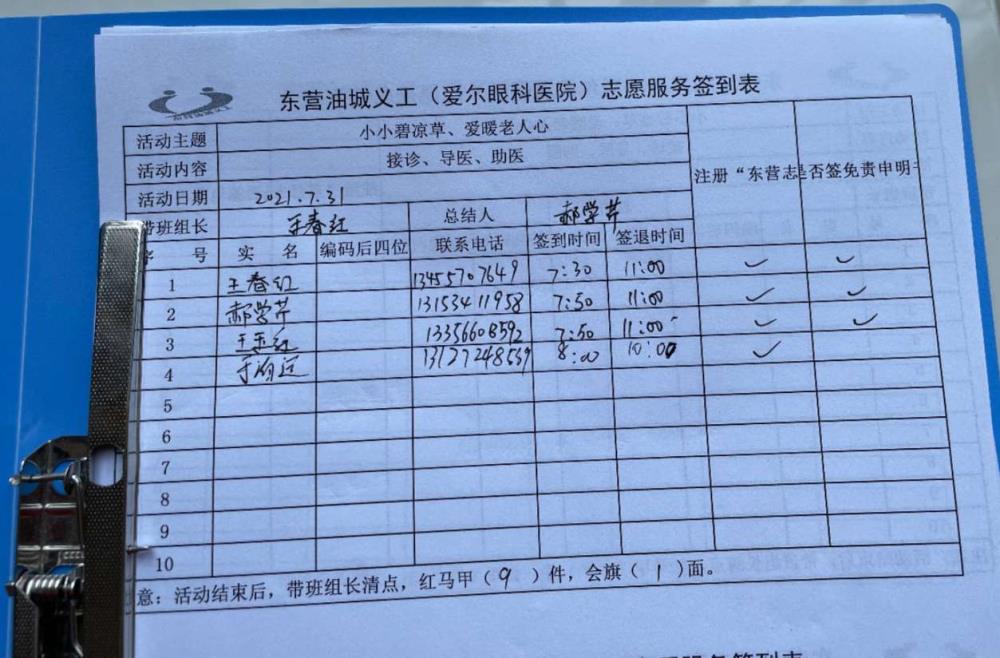 东营油城义工（爱尔眼科医院）志愿服务签到表
活动主题 小小碧凉草、爱暖老人心
活动内容 接诊、导医、助医 注册“东营志 是否签免责申明书
活动日期 2021.7.31
带班组长 王春红 总结人 郝学芹
序 号 实 名 编码后四位 联系电话 签到时间 签退时间
1 王春红 13455707649 7:30 11:00 ✓ ✓
2 郝学芹 13153411958 7:50 11:00 ✓ ✓
3 红 13356608592 7:50 11:00 ✓ ✓
4 于 13127248539 8:00 10:00 ✓
5
6
7
8
9
10
意：活动结束后，带班组长清点，红马甲（ 9 ）件，会旗（ 1 ）面。